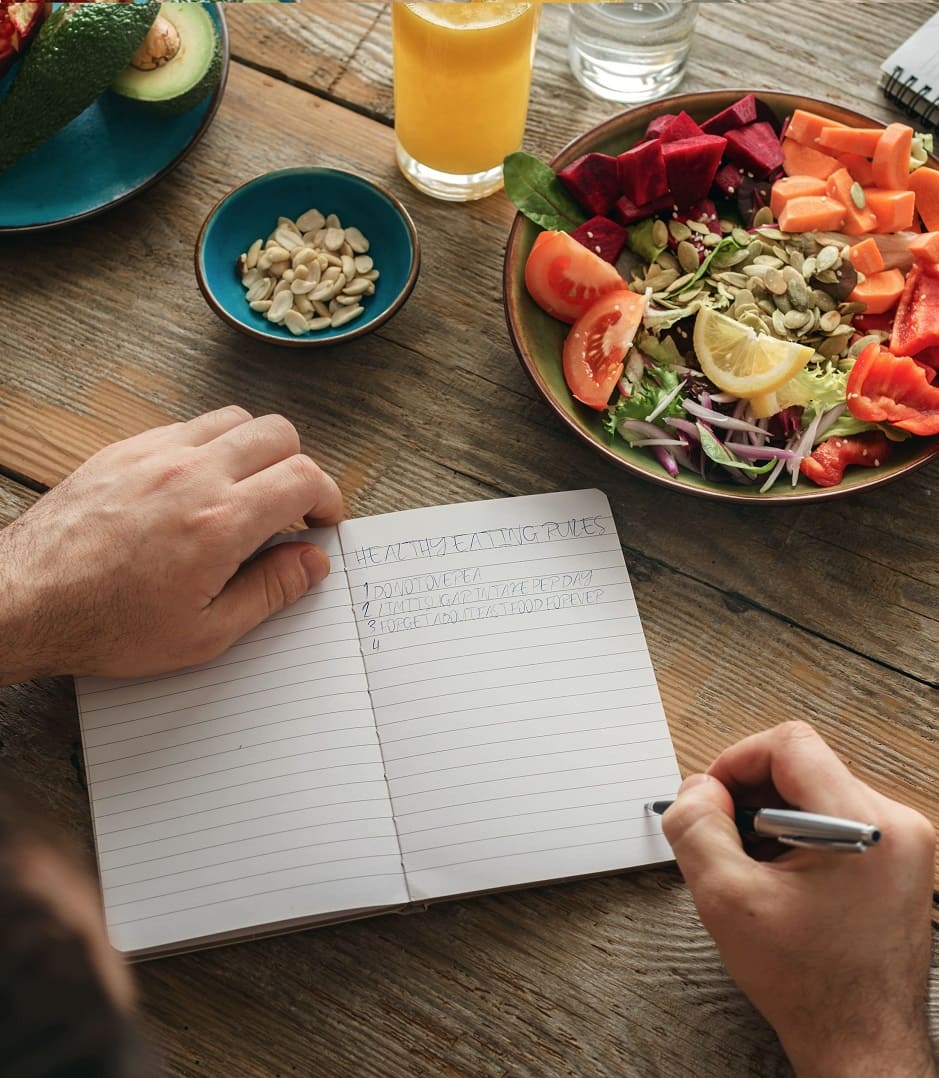 HEALTHY EATING RULES
1 DO NOT OVEREA
2 LIMIT SUGAR INTAKE PER DAY
3 FORGET ABOUT FAST FOOD FOREVER
4